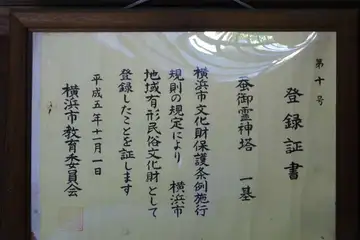 第十号
登録証書
蚕御霊神塔 一基
横浜市文化財保護条例施行
規則の規定により 横浜市
地域有形民俗文化財として
登録したことを証します
平成五年十一月一日
横浜市教育委員会